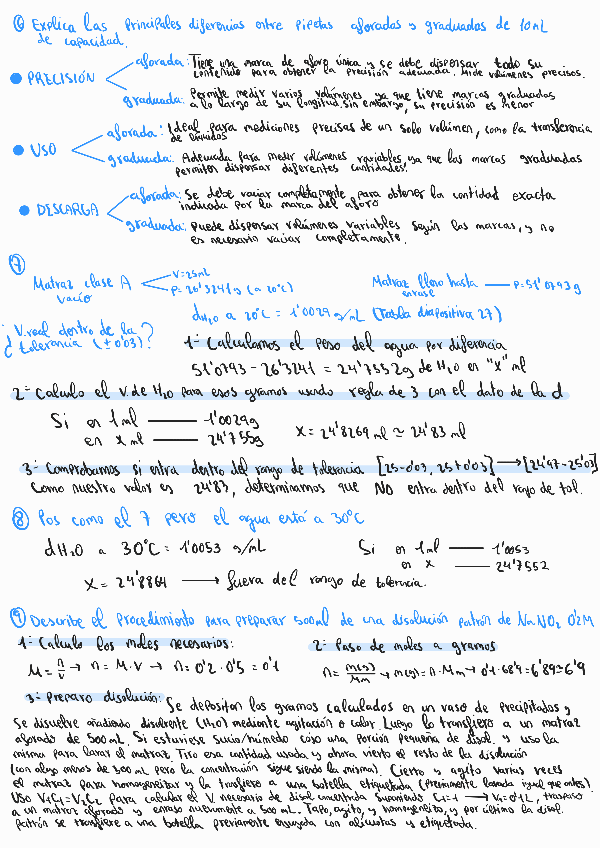 ⑥ Explica las principales diferencias entre pipetas aforadas y graduadas de 10mL
de capacidad.
● PRECISIÓN
aforada: Tiene una marca de aforo única y se debe dispensar todo su
contenido para obtener la precisión adecuada. Mide volúmenes precisos.
graduada: Permite medir varios volúmenes, ya que tiene marcas graduadas
a lo largo de su longitud. Sin embargo, su precisión es menor
● USO
aforada: Ideal para mediciones precisas de un solo volúmen, como la transferencia
de líquidos
graduada: Adecuada para medir volúmenes variables, ya que las marcas graduadas
permiten dispensar diferentes cantidades.
● DESCARGA
aforada: Se debe vaciar completamente para obtener la cantidad exacta
indicada por la marca del aforo
graduada: Puede dispensar volúmenes variables según las marcas, y no
es necesario vaciar completamente.
⑦
Matraz clase A
vacío
V=25mL
P=26'3241g (a 20ºC)
Matraz lleno hasta
enrase
P=51'0793g
dH2O a 20ºC = 1'0029 g/mL (Tabla diapositiva 27)
¿ V.real dentro de la
tolerancia (±0'03) ?
1º Calculamos el peso del agua por diferencia
51'0793 - 26'3241 = 24'7552g de H2O en "x" ml
2º Calculo el V. de H2O para esos gramos usando regla de 3 con el dato de la d
Si en 1ml — 1'0029g
en x ml — 24'755g
x = 24'8269 ml ≃ 24'83 ml
3º Comprobamos si entra dentro del rango de tolerancia [25-0'03, 25+0'03] → [24'97-25'03]
Como nuestro valor es 24'83, determinamos que NO entra dentro del rango de tol.
⑧ Pos como el 7 pero el agua está a 30ºC
dH2O a 30ºC = 1'0053 g/mL
Si en 1ml — 1'0053
en x — 24'7552
x = 24'8864 → fuera del rango de tolerancia.
⑨ Describe el procedimiento para preparar 500ml de una disolución patrón de NaNO2 0'2M
1º Calculo los moles necesarios:
M = n/V → n = M·V → n = 0'2·0'5 = 0'1
2º Paso de moles a gramos
n = m(g)/Mm → m(g) = n·Mm → 0'1·68'9 = 6'89 ≃ 6'9
3º Preparo disolución: Se depositan los gramos calculados en un vaso de precipitados y
se disuelve añadiendo disolvente (H2O) mediante agitación o calor. Luego lo transfiero a un matraz
aforado de 500mL. Si estuviese sucio/húmedo cojo una porción pequeña de disol. y uso la
misma para lavar el matraz. Tiro esa cantidad usada y ahora vierto el resto de la disolución
(con algo menos de 500 mL pero la concentración sigue siendo la misma). Cierro y agito varias veces
el matraz para homogeneizar y la transfiero a una botella etiquetada (previamente lavada igual que antes).
Uso V1C1=V2C2 para calcular el V. necesario de disol concentrada suponiendo C1=1 → V1=0'1L, traspaso
a un matraz aforado y enraso nuevamente a 500 mL. Tapo, agito, y homogeneizo, y por último la disol.
patrón se transfiere a una botella previamente enjuagada con alícuotas y etiquetada.